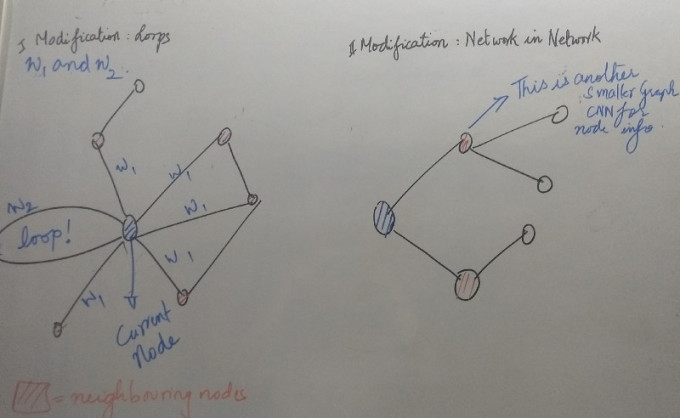 I Modification : Loops
W₁ and W₂.
W₁
W₁
W₁
W₁
W₁
W₂
loop!
Current
Node
= neighbouring nodes
II Modification : Network in Network
This is another
Smaller Graph
CNN for
node info.